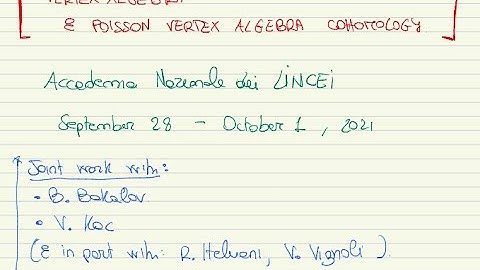 VERTEX ALGEBRA
& POISSON VERTEX ALGEBRA COHOMOLOGY
Accademia Nazionale dei LINCEI
September 28 - October 1, 2021
Joint work with:
• B. Bakalov
• V. Kac
(& in part with: R. Heluani, V. Vignoli).